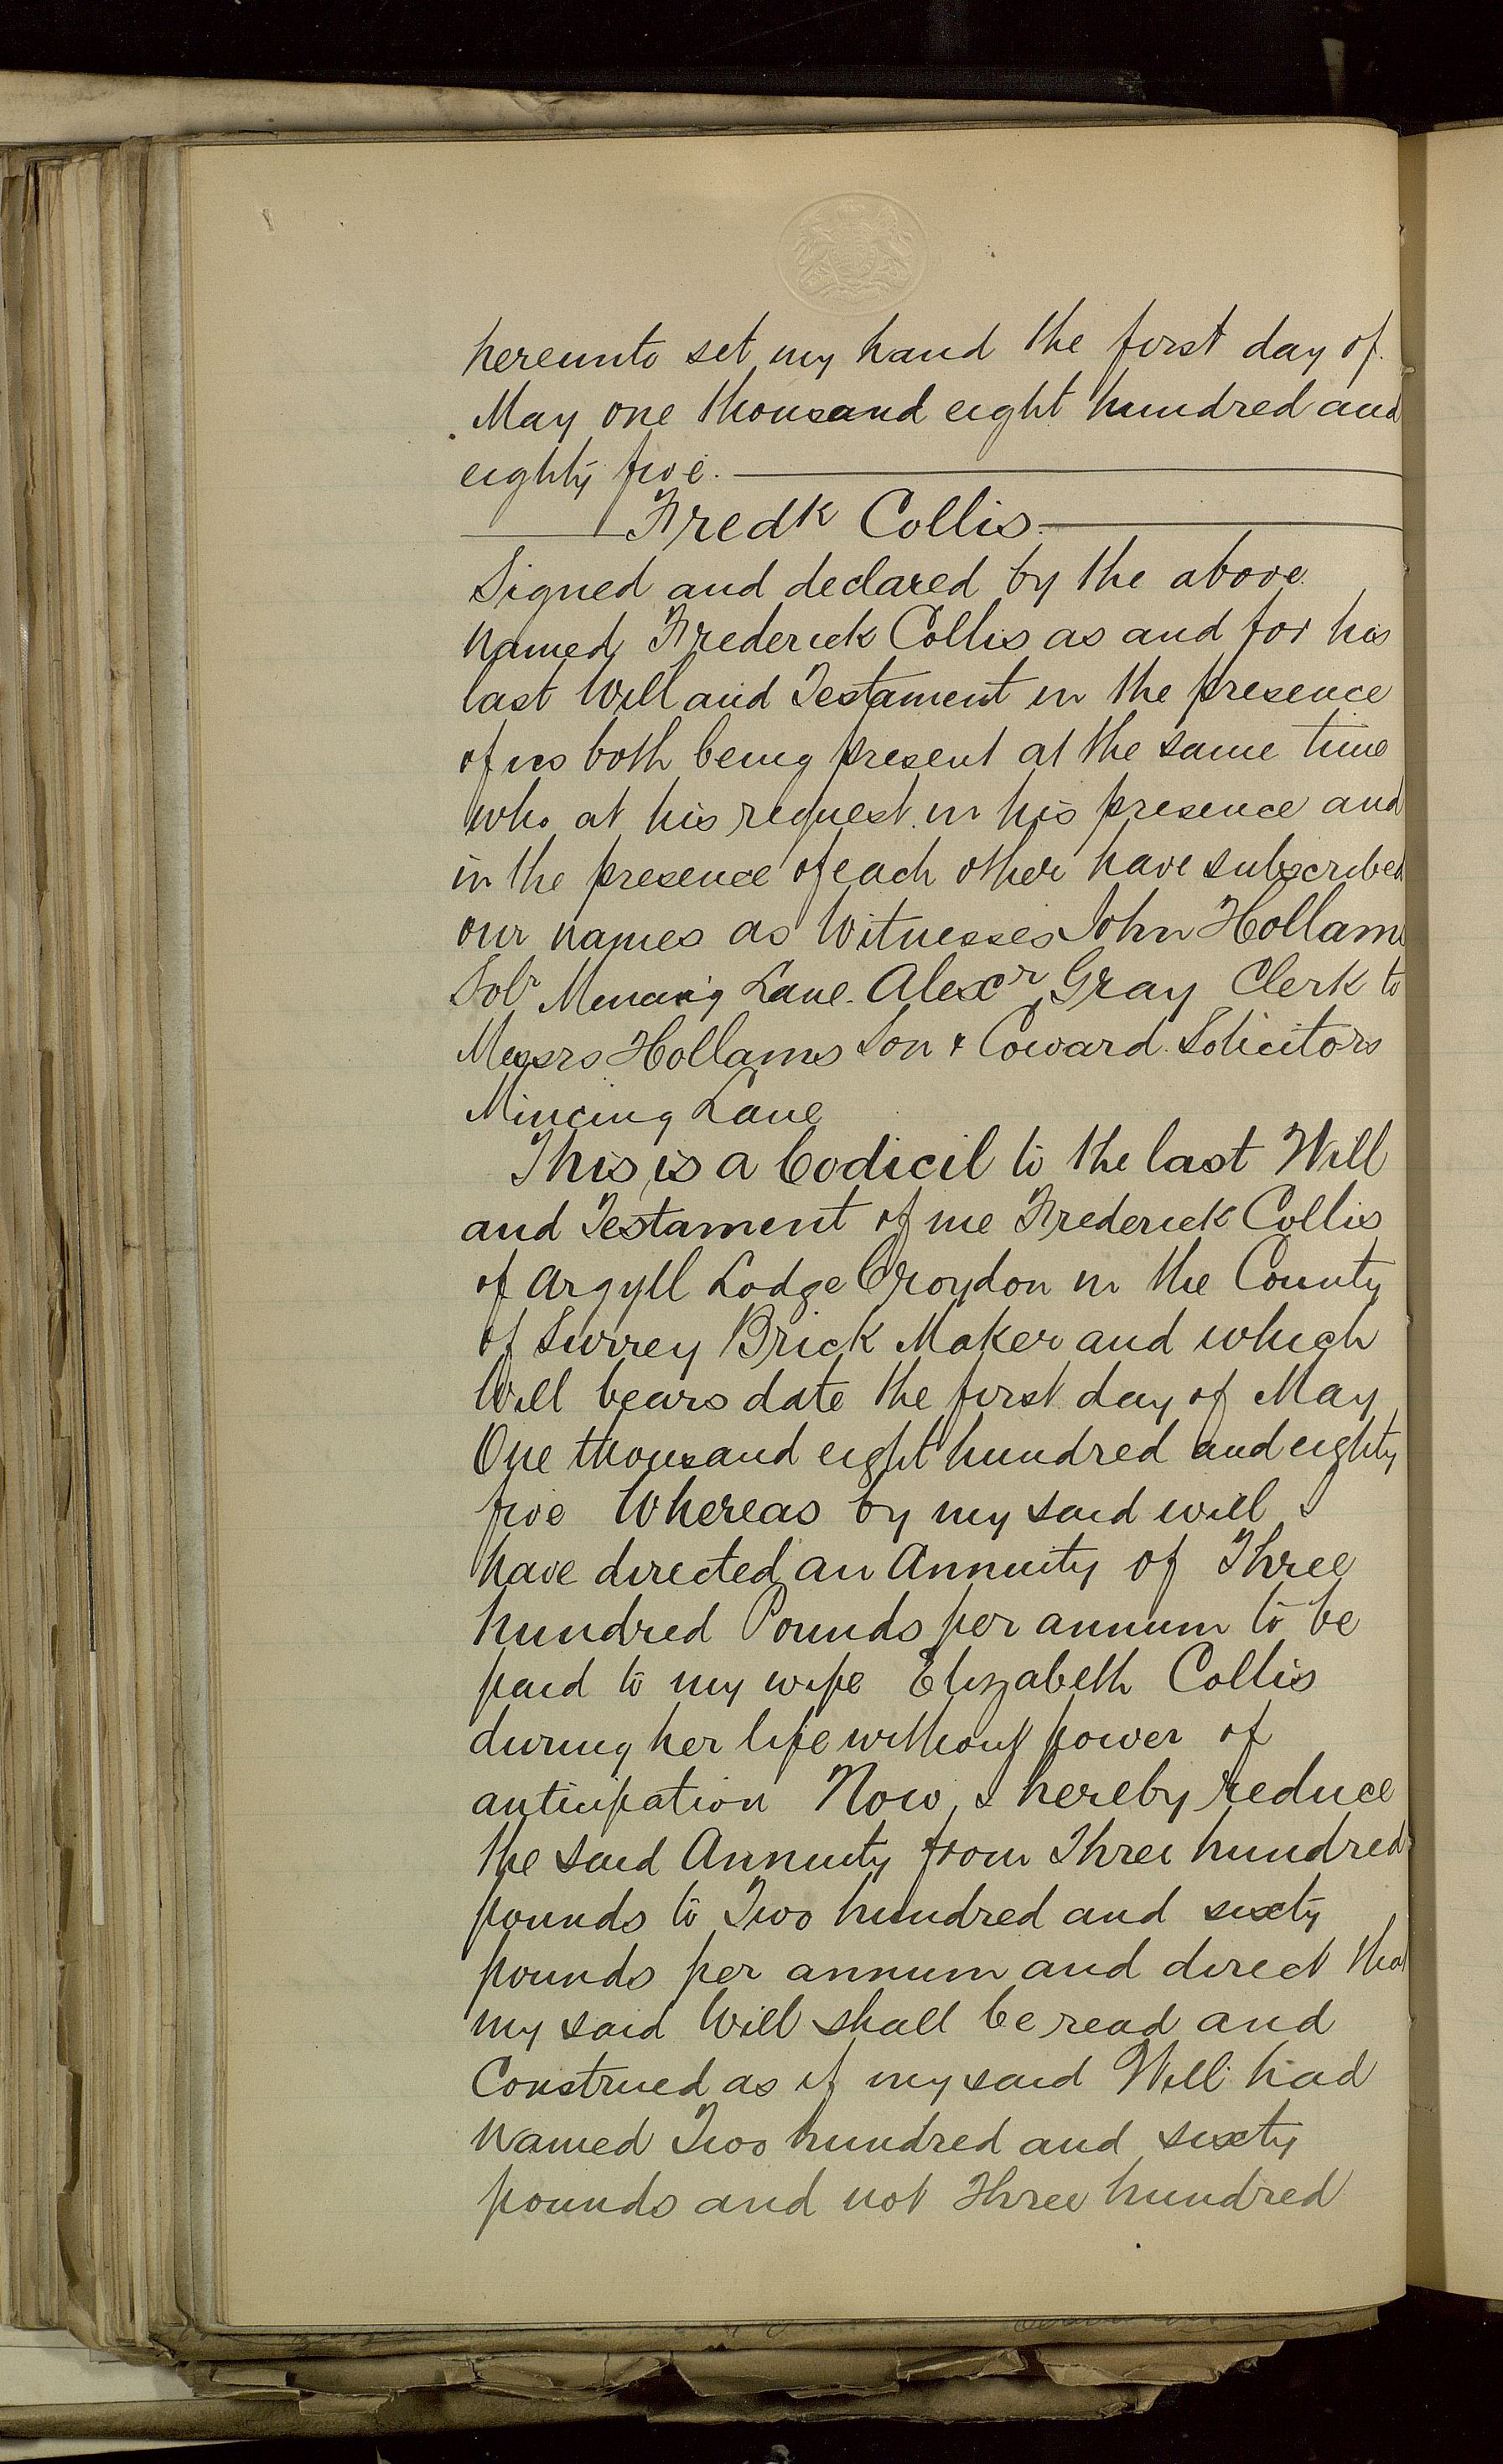 hereunto set my hand the first day of
May one thousand eight hundred and
eighty five.
Fredk Collis
Signed and declared by the above
named Frederick Collis as and for his
last Will and Testament in the presence
of us both being present at the same time
who at his request in his presence and
in the presence of each other have subscribed
our names as Witnesses John Hollams
Solr Mincing Lane. Alexr Gray Clerk to
Messrs Hollams Son & Coward Solicitors
Mincing Lane
This is a Codicil to the last Will
and Testament of me Frederick Collis
of Argyll Lodge Croydon in the County
of Surrey Brick Maker and which
Will bears date the first day of May
One thousand eight hundred and eighty
five Whereas by my said will I
have directed an Annuity of Three
hundred Pounds per annum to be
paid to my wife Elizabeth Collis
during her life without power of
anticipation Now I hereby reduce
the said Annuity from Three hundred
pounds to Two hundred and sixty
pounds per annum and direct that
my said Will shall be read and
Construed as if my said Will had
named Two hundred and sixty
pounds and not Three hundred